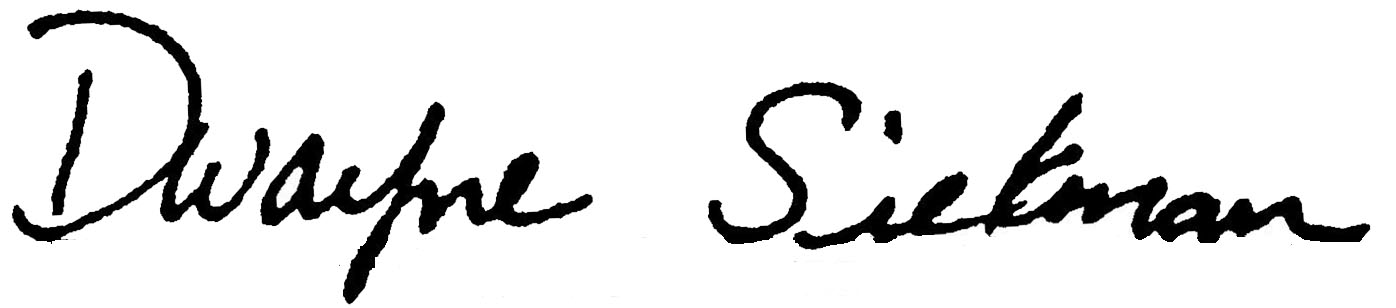 Dwayne Siekman